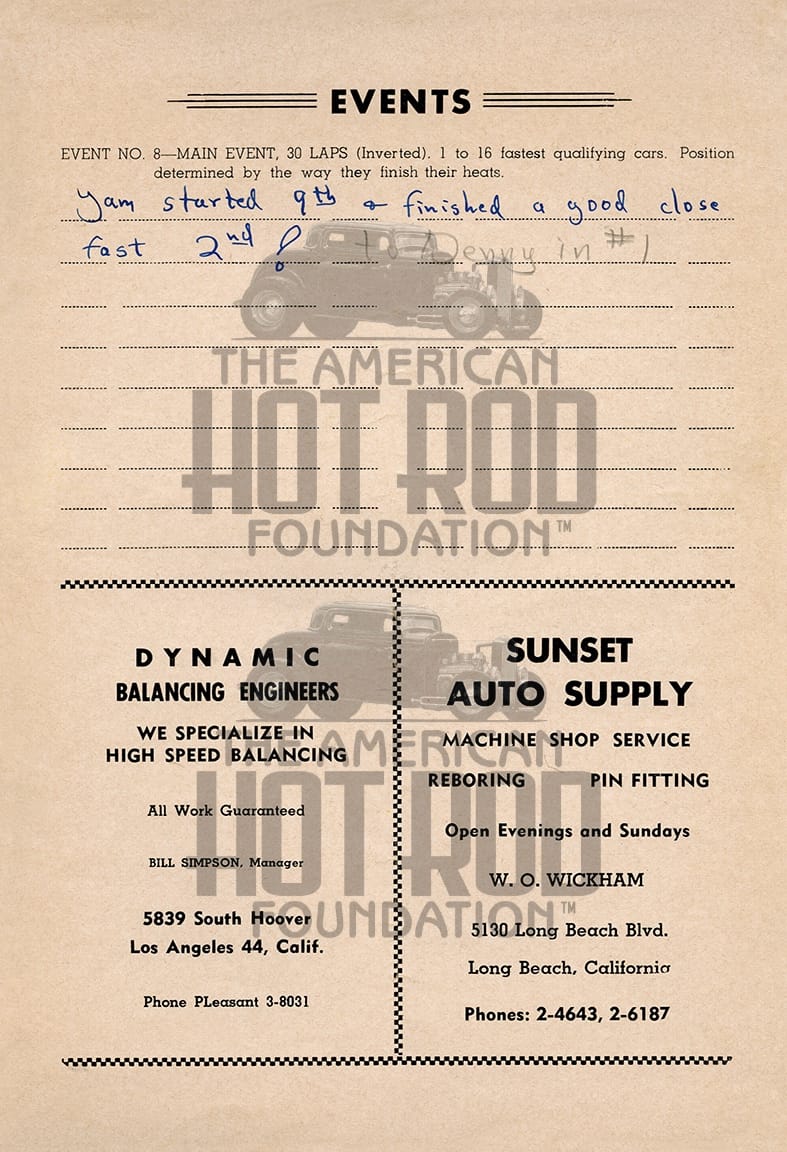 EVENTS
EVENT NO. 8—MAIN EVENT, 30 LAPS (Inverted). 1 to 16 fastest qualifying cars. Position
determined by the way they finish their heats.
Yam started 9th & finished a good close
fast 2nd! to Denny in #1
THE AMERICAN
HOT ROD
FOUNDATION™
DYNAMIC
BALANCING ENGINEERS
WE SPECIALIZE IN
HIGH SPEED BALANCING
All Work Guaranteed
BILL SIMPSON, Manager
5839 South Hoover
Los Angeles 44, Calif.
Phone PLeasant 3-8031
SUNSET
AUTO SUPPLY
MACHINE SHOP SERVICE
REBORING PIN FITTING
Open Evenings and Sundays
W. O. WICKHAM
5130 Long Beach Blvd.
Long Beach, California
Phones: 2-4643, 2-6187
THE AMERICAN
HOT ROD
FOUNDATION™